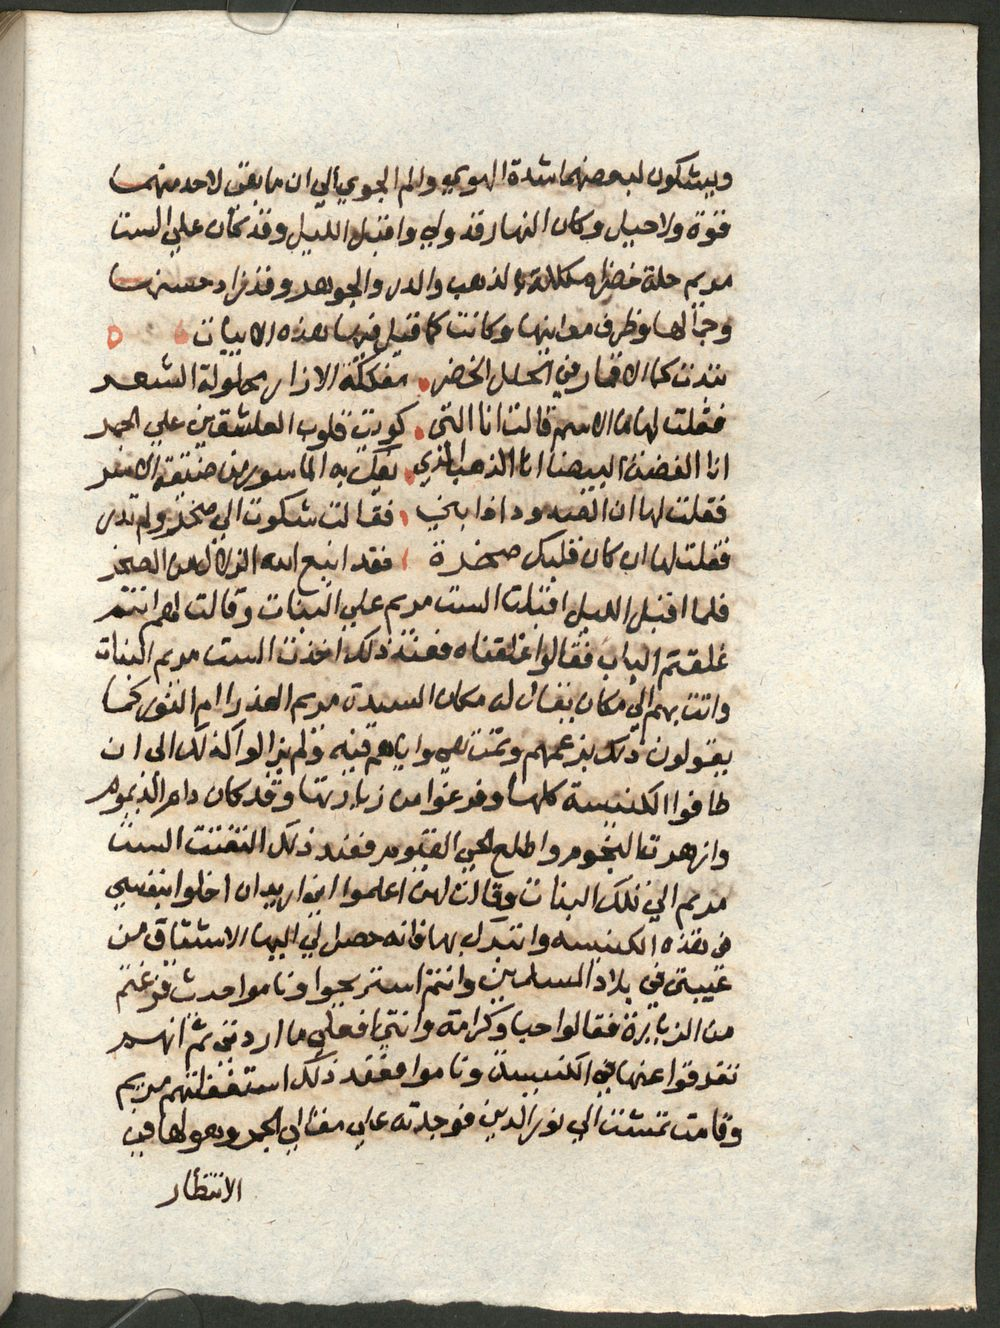 ويشكون لبعضهما شدة الهوي والم الجوي الي ان ما بقي لاحد منهما
قوة ولا حيل وكان النهار قد ولي واقبل الليل وقد كان علي الست
مريم حلة خضرا مكللة بالذهب والدر والجوهر وقد زاد حسنها
وجمالها وظرف معانيها وكانت كما قيل فيها هذه الابيات
تبدت كما الاقمار في الحلل الخضر مفككة الازرار محلولة الشعر
فقلت لها ما الاسم قالت انا التي كويت قلوب العاشقين علي الجمر
انا الفضة البيضا انا الذهب الذي يفك به الماسور من ضيقة الاسر
فقلت لها ان الصدود اذابني فقالت شكوت الي صخر ولم تدر
فقلت لها ان كان قلبك صخرة فقد انبع الله الزلال من الصخر
فلما اقبل الليل اقبلت الست مريم علي البنات وقالت لهم انتم
غلقتم الباب فقالوا غلقناه فعند ذلك اخذت الست مريم البنات
واتت بهم الي مكان يقال له مكان السيدة مريم العذرا ام النور كما
يقولون ذلك بزعمهم وتمت هي واياهم فيه ولم يزالوا كذلك الى ان
طافوا الكنيسة كلها وفرغوا من زيارتها وقد كان
وازهرت النجوم واطلع الحي القيوم فعند ذلك التفتت الست
مريم الي تلك البنات وقالت لهن اعلموا اني اريد ان اخلوا بنفسي
في هذه الكنيسه واتبرك بها فانه حصل لي اليها الاشتياق من
غيبتي في بلاد المسلمين وانتم استريحوا وناموا حيث فرغتم
من الزيارة فقالوا حبا وكرامة وانتي افعلي ما اردتي ثم انهم
تفرقوا عنها في الكنيسة وناموا فعند ذلك استغفلتهم مريم
وقامت تمشت الي نور الدين فوجدته علي مقالي الجمر وهو لها في
الانتظار